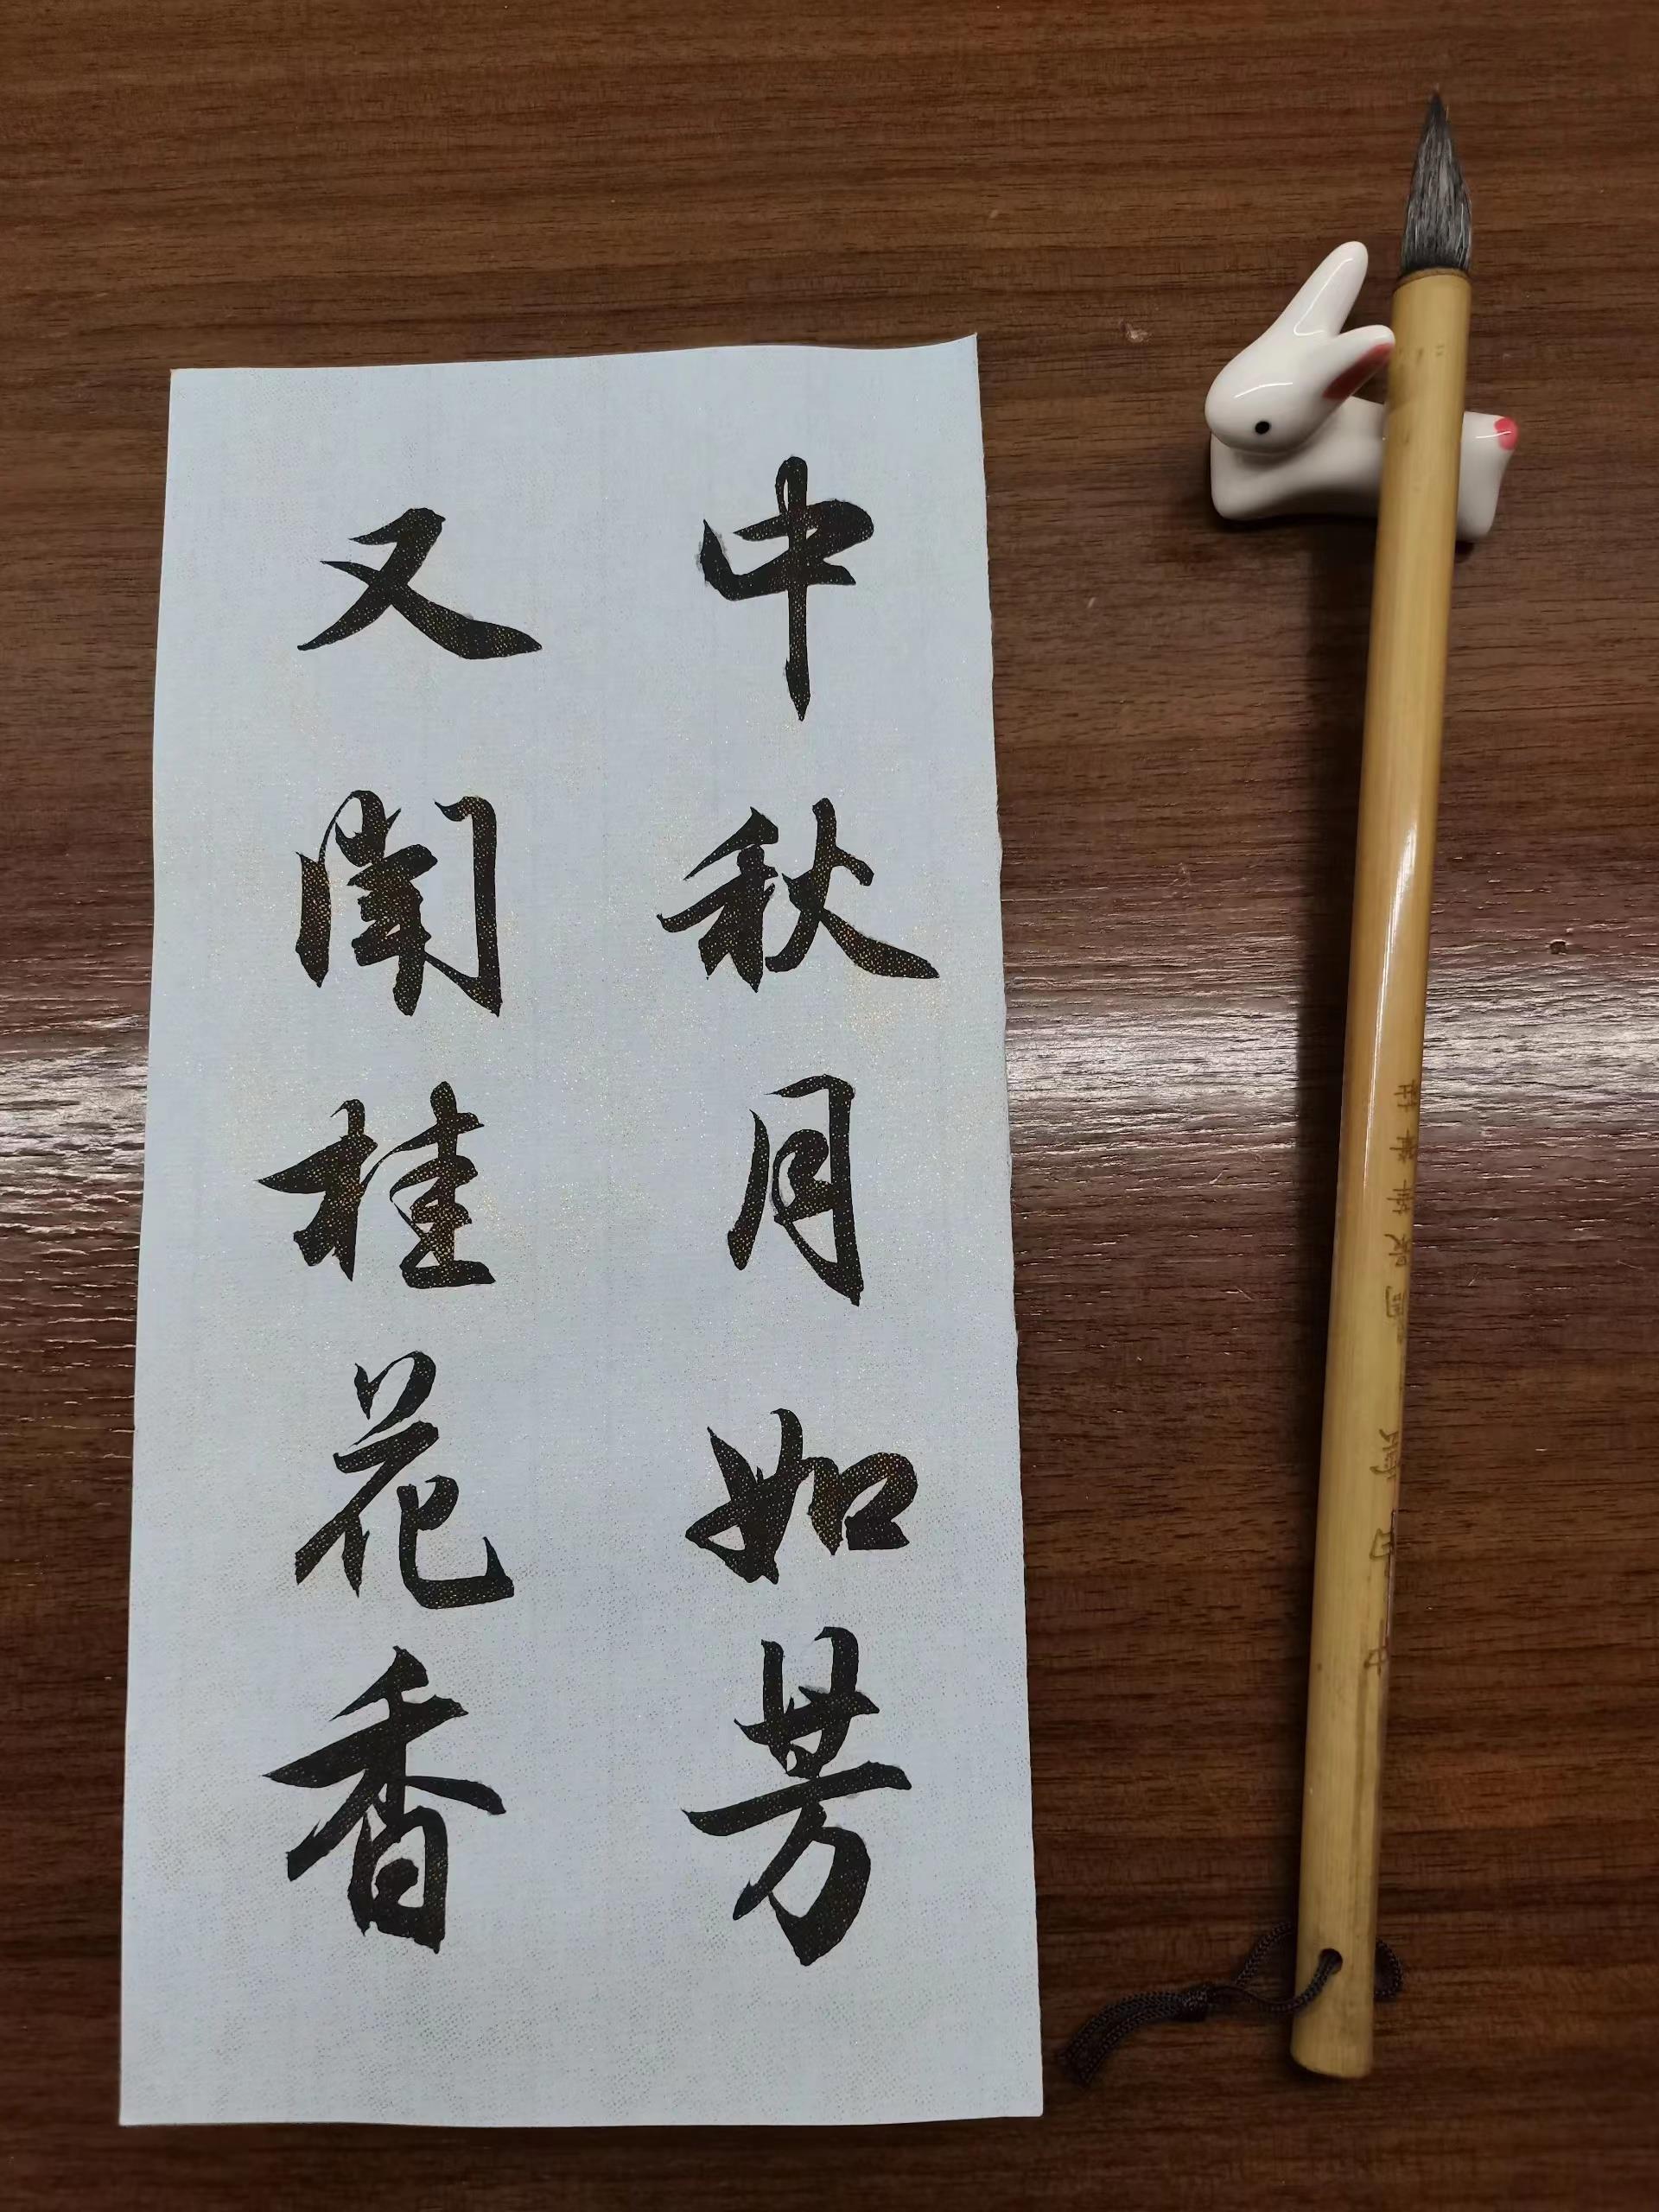 中秋月如芳
又闻桂花香